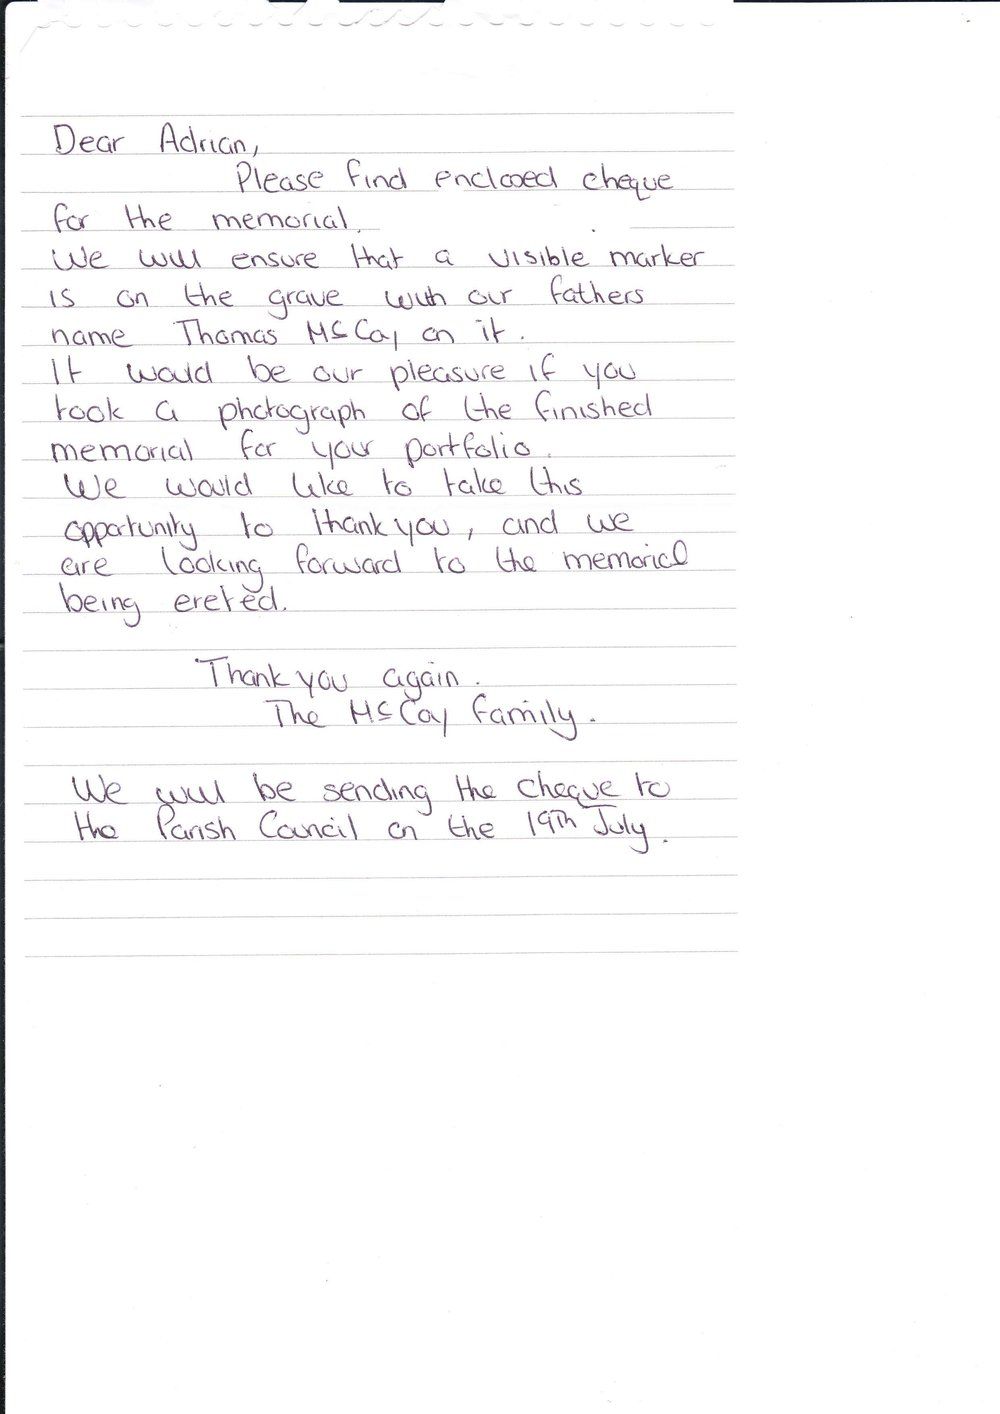 Dear Adrian,
Please find enclosed cheque
for the memorial.
We will ensure that a visible marker
is on the grave with our fathers
name Thomas McCoy on it.
It would be our pleasure if you
took a photograph of the finished
memorial for your portfolio.
We would like to take this
opportunity to thank you, and we
are looking forward to the memorial
being ereted.
Thank you again.
The McCoy family.
We will be sending the cheque to
the Parish Council on the 19th July.